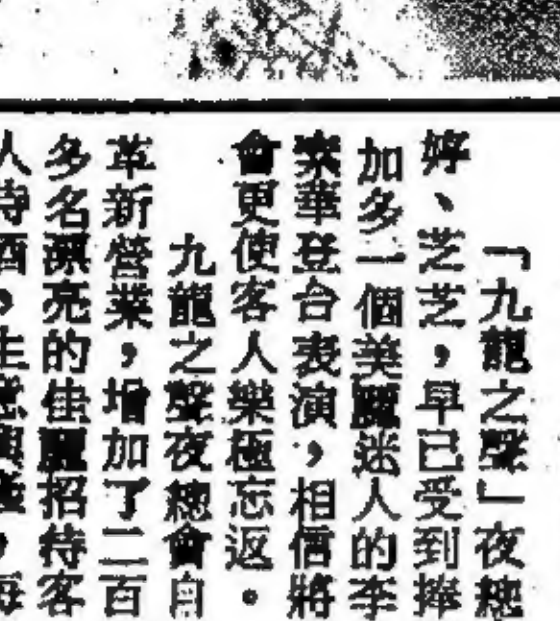 「九龍之聲」夜總
婷、芝芝，早已受到捧
加多一個美麗迷人的李
寀華登台表演，相信將
會更使客人樂極忘返。
九龍之聲夜總會自
革新營業，增加了二百
多名漂亮的佳麗招待客
人侍酒，生意